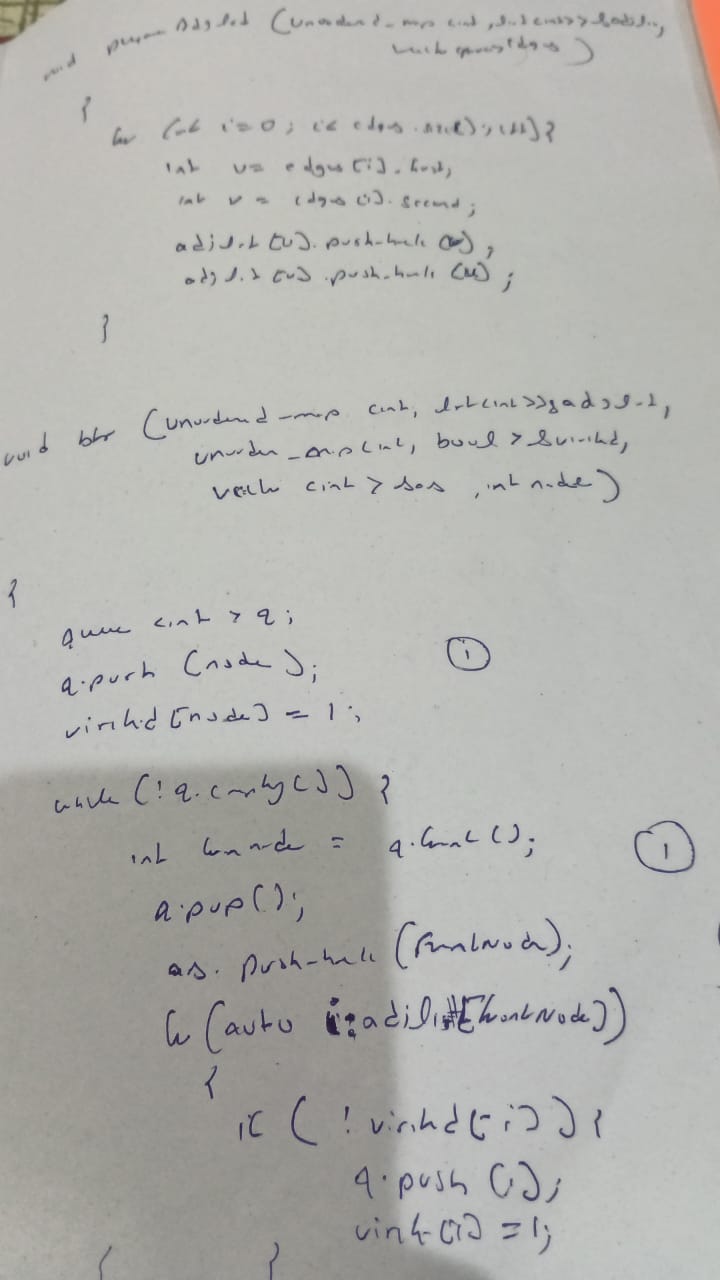 void prepare AdjList (unordered_map <int, list<int>> &adjlist,
vector<pair<int edges)
{
for (int i=0; i< edges.size(); i++){
int u= edges[i].first;
int v = edges[i].second;
adjlist[u].push-back(v);
adjlist[v].push-back(u);
}
void bfs (unordered_map <int, list<int>> &adjlist,
unordered_map<int, bool> &visited,
vector <int> &ans, int node)
{
queue <int> q;
q.push (node);
①
visited[node] = 1;
while (!q.empty()) {
int frontnode = q.front();
①
q.pop();
ans.push-back(frontNode);
for (auto i:adjlist[frontNode])
{
if (!visited[i]){
q.push(i);
visited[i] = 1;
}
}